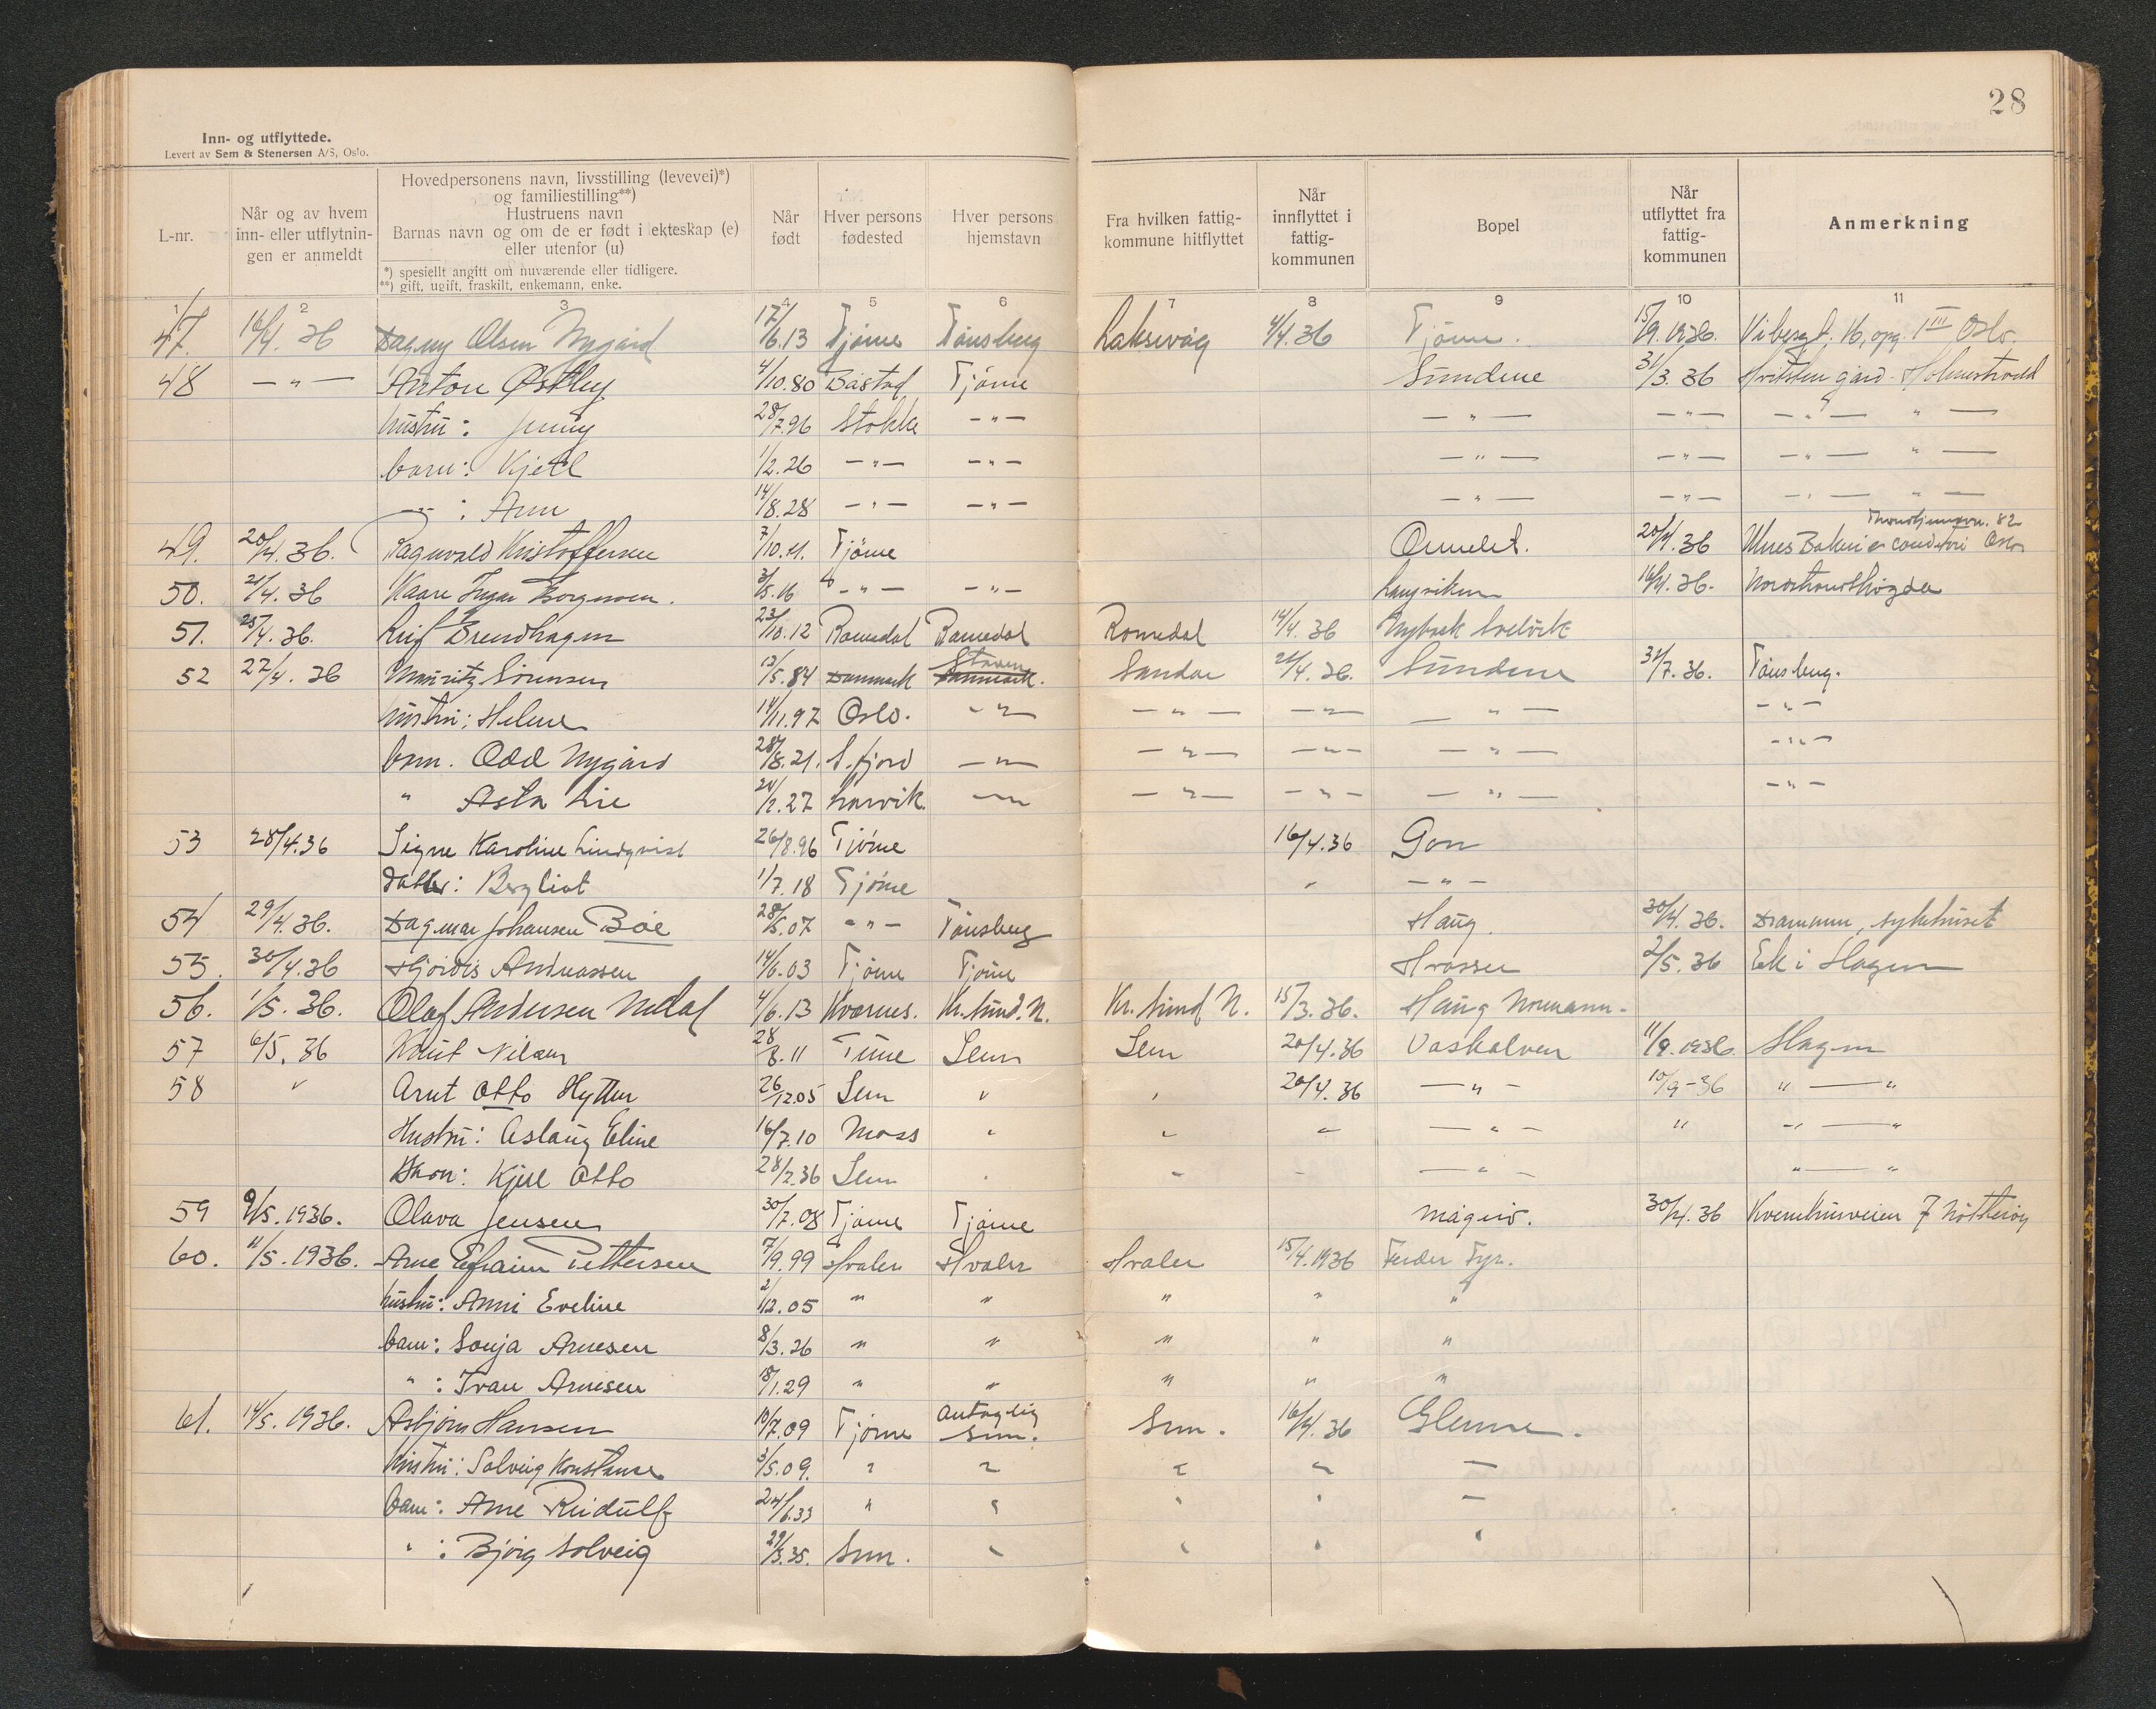 28
Inn- og utflyttede.
Levert av Sem & Stenersen A/S, Oslo.
L-nr.
Når og av hvem inn- eller utflytningen er anmeldt
Hovedpersonens navn, livsstilling (levevei)*) og familiestilling**)
Hustruens navn
Barnas navn og om de er født i ekteskap (e) eller utenfor (u)
*) spesiellt angitt om nuværende eller tidligere.
**) gift, ugift, fraskilt, enkemann, enke.
Når født
Hver persons fødested
Hver persons hjemstavn
Fra hvilken fattigkommune hitflyttet
Når innflyttet i fattigkommunen
Bopel
Når utflyttet fra fattigkommunen
Anmerkning
1 2 3 4 5 6 7 8 9 10 11
47. 16/4. 36 Dagny Olsen Nygård 17/6.13 Tjøme Tønsberg Laksevåg 4/4.36 Tjøme. 15/9.1936. Vibesgt. 16, opg. 1 III Oslo.
48 — " — Anton Østby 4/10.80 Båstad Tjøme Sundene 31/3.36 gård. Holmestrand
hustru: Jenny 28/7.96 Stokke — " — — " — — " — — " — " —
barn: Kjell 1/2.26 — " — — " — — " — — " — — " — " —
— " — : Ann 14/8.28 — " — — " — — " — — " — — " — " —
49. 20/4.36. Ragnvald Kristoffersen 7/10.11. Tjøme Ormelet. 20/4.36 Trondhjemsvn. 82 Bakeri & conditori Oslo
50. 21/4.36 Kaare Ingar Borgersen. 3/5.16 — " — — " — Langviken 16/4.36. Nordstrandshøgda
51. 25/4.36. Leif Brendhagen 23/10.12 Romedal Romedal Romedal 14/4.36 Nybakk Solvik
52 22/4.36 Mauritz Sørensen 13/5.84 Danmark Danmark. Sandar 21/4.36. Sundene 31/7.36. Tønsberg.
hustru: Helene 14/11.97 Oslo. — " — — " — — " — — " — — " —
barn. Odd Nygård 28/8.21. S.fjord — " — — " — — " — — " — — " —
" Asta Lie 24/2.27 Larvik. — " — — " — — " — — " — — " —
53 28/4.36 Signe Karoline Lindqvist 26/8.96 Tjøme 16/4.36 Gon
datter: Bergliot 1/7.18 Tjøme " — " —
54 29/4.36. Dagmar Johansen Bøe 28/5.07 — " — Tønsberg Haug. 30/4.36. Drammen, sykehuset
55. 30/4.36 Hjørdis Andreassen 14/6.03 Tjøme Tjøme Hvasser 2/5.36 Ek i Slagen
56. 1/5.36. Olaf Andersen Nedal 4/6.13 Kvernes. Kr.sund.N. Kr.sund N. 15/3.36. Haug Normann.
57 6/5.36 Knut Nilsen 28/8.11 Tune Sem Sem 20/4.36 Vaskalven 11/9.1936. Slagen
58 " Arnt Otto Hytten 26/12.05 Sem " " 20/4.36 — " — 10/9-36 " — "
Hustru: Aslaug Eline 16/7.10 Moss " " " — " — " " — "
Barn: Kjell Otto 28/2.36 Sem " " " — " — " — "
59 9/5.1936. Olava Jensen 30/7.08 Tjøme Tjøme Mågerø. 30/4.36 Kvernhusveien 7 Nøtterøy
60. 11/5.1936. Arne Efraim Pettersen 7/9.99 Hvaler Hvaler Hvaler 15/4.1936 Færder Fyr.
hustru: Anni Eveline 2/12.05 " " " " "
barn: Sonja Arnesen 8/3.26 " " " " "
" : Ivan Arnesen 18/1.29 " " " " "
61. 14/5.1936. Asbjørn Hansen 10/7.09 Tjøme Antaglig Sem. Sem. 16/4.36 Glenne.
Hustru: Solveig Konstanse 3/5.09. " " " " —
barn: Arne Reidulf 24/6.33 " " " " —
" : Bjørg Solveig 29/3.35. Sem. " " " "